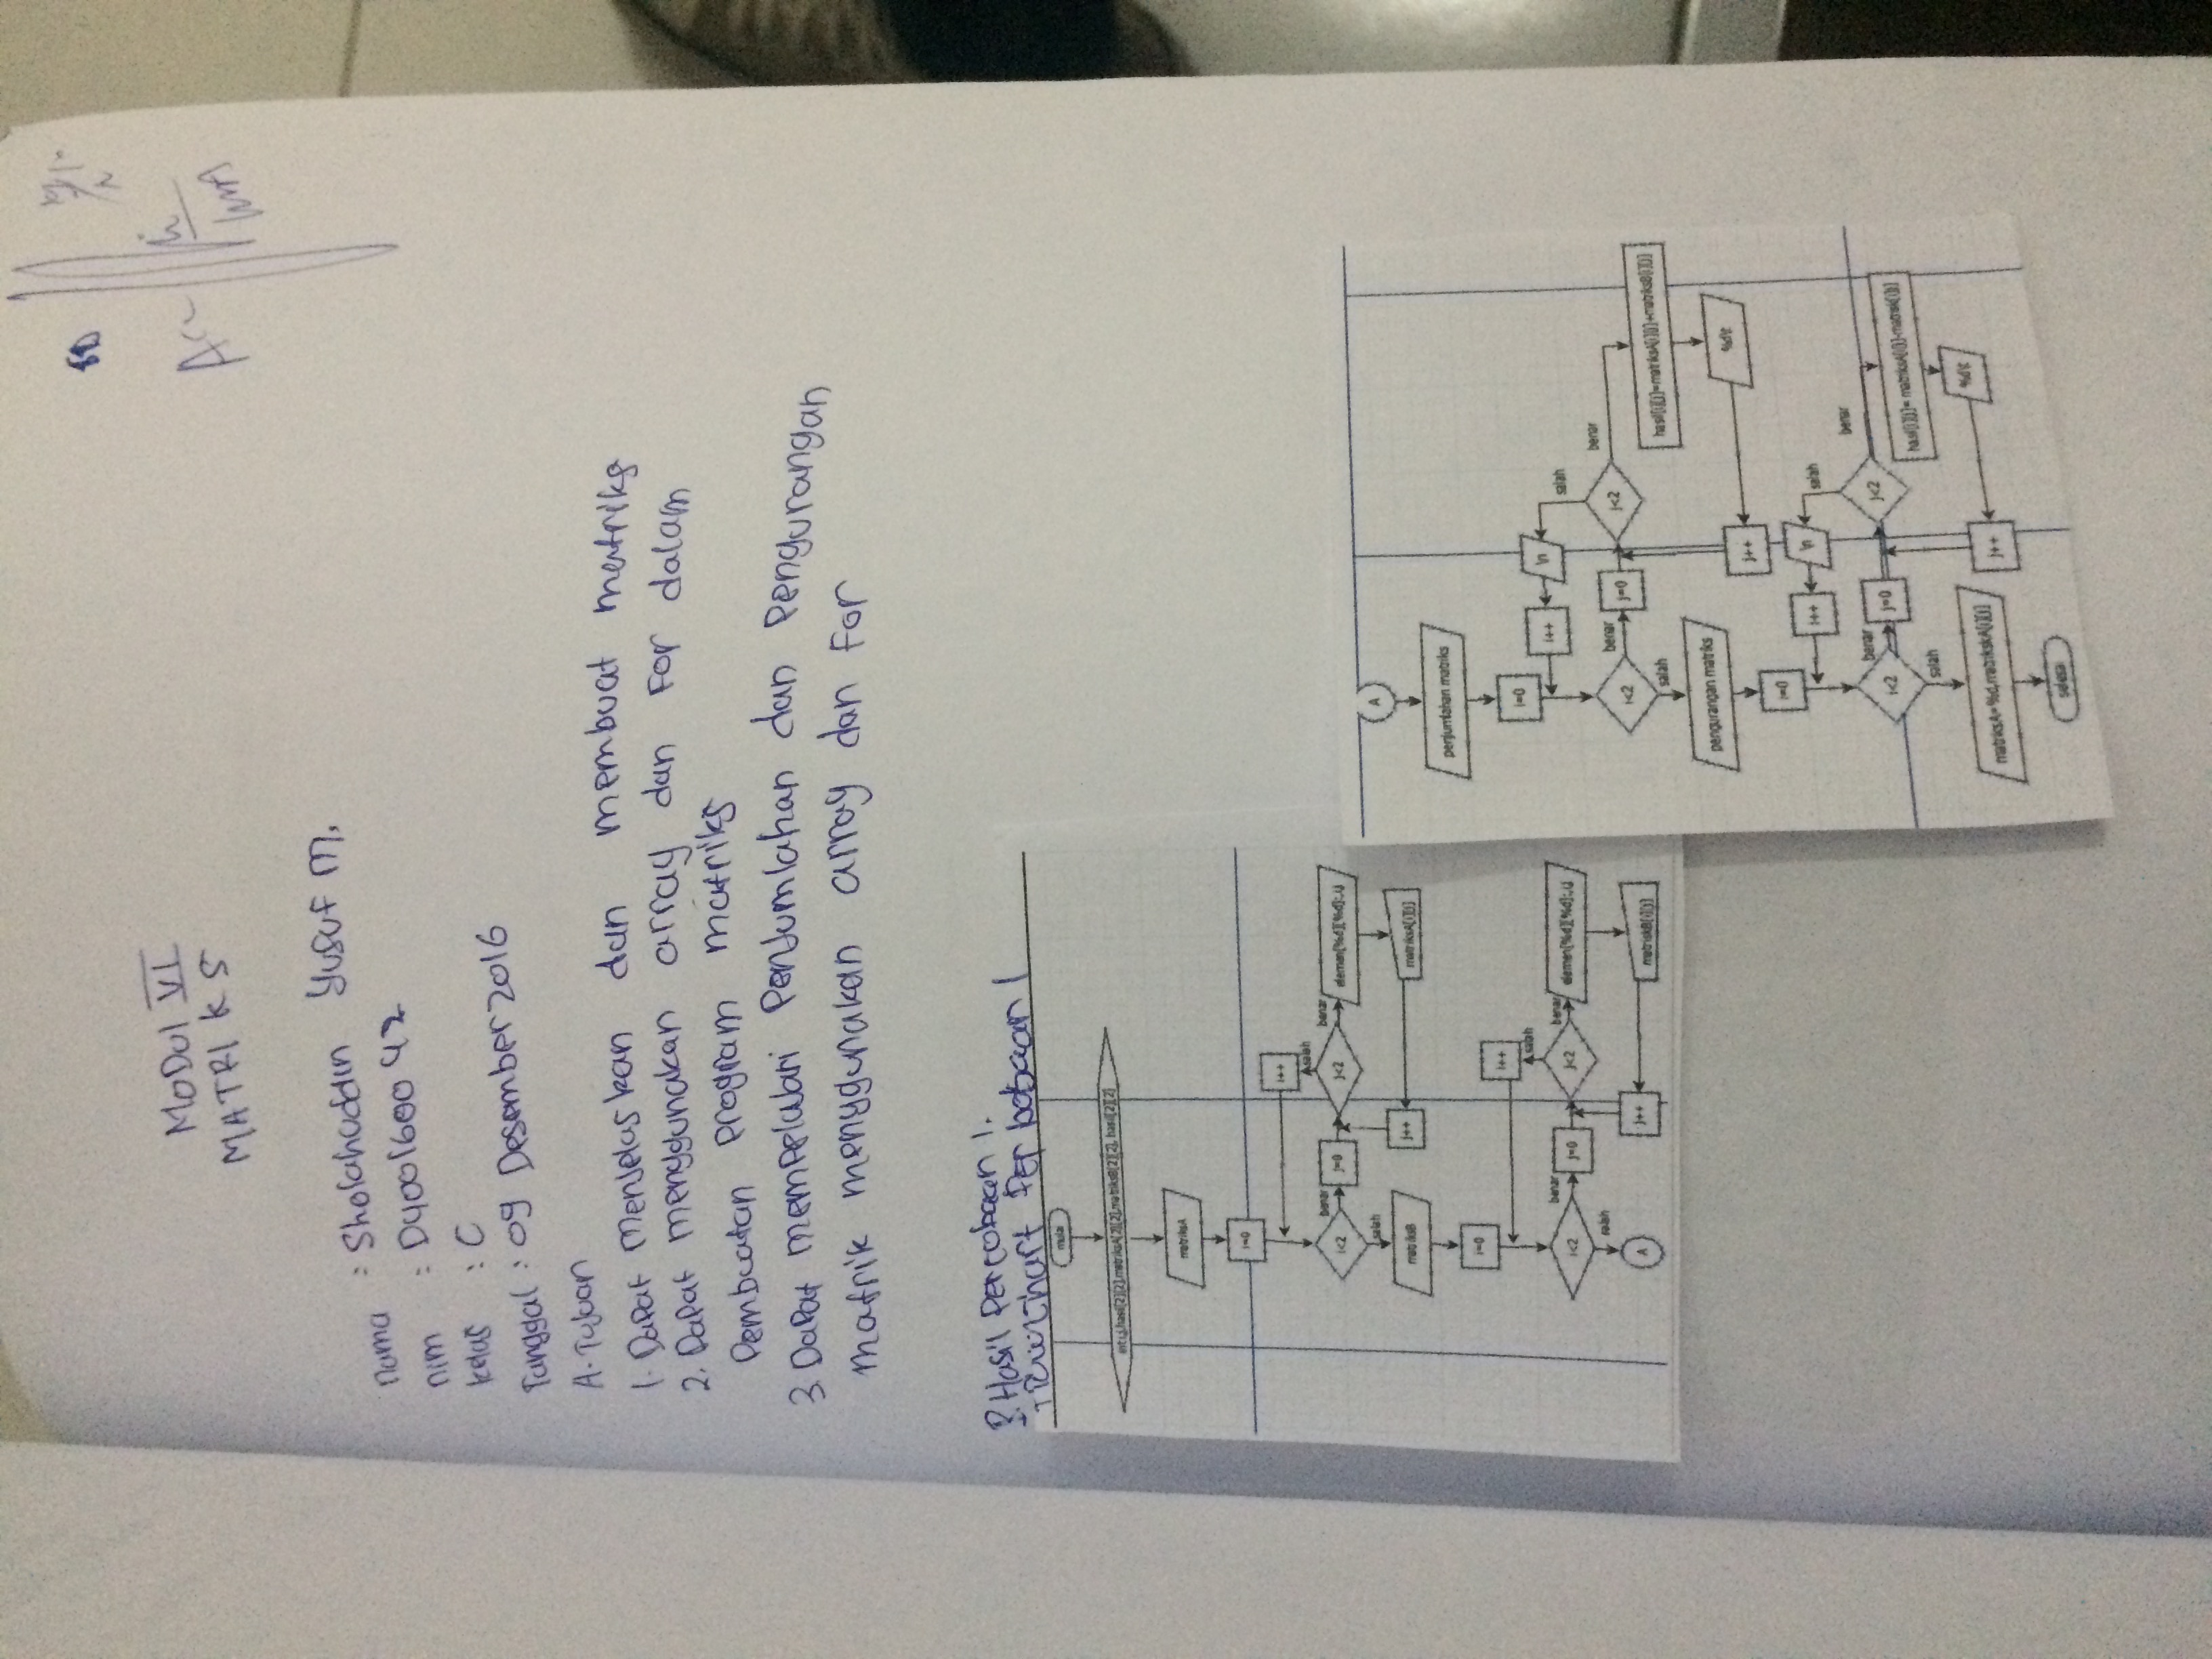 80
Acc
MODUL VI
MATRIKS
nama : Sholahuddin Yusuf M.
nim : D400160042
kelas : C
Tanggal : 09 Desember 2016
A. Tujuan
1. Dapat menjelaskan dan membuat matriks
2. Dapat menggunakan array dan For dalam
Pembuatan program matriks
3. Dapat mempelajari Penjumlahan dan Pengurangan
matrik menggunakan array dan For
B. Hasil Percobaan 1.
Flowchart Percobaan 1
mulai
int i,j,hasil[2][2],matriksA[2][2],matriksB[2][2], hasil[2][2]
matriksA
i=0
i++
salah
i<2
benar
j=0
j<2
benar
elemen[%d][%d]:,i,j
salah
matriksB
j++
matriksA[i][j]
i=0
i++
salah
i<2
benar
j=0
j<2
benar
elemen[%d][%d]:,i,j
salah
A
j++
matriskB[i][j]
A
penjumlahan matriks
i=0
i++
\n
salah
i<2
benar
j=0
j<2
benar
hasil[i][j]=matriksA[i][j]+matriksB[i][j]
salah
pengurangan matriks
j++
%d\t
i=0
i++
\n
salah
i<2
benar
j=0
j<2
benar
hasil[i][j]= matriksA[i[j]-matrisk[i]j]
salah
matriksA=%d,matrikskA[i][j]
j++
%d\t
selesai